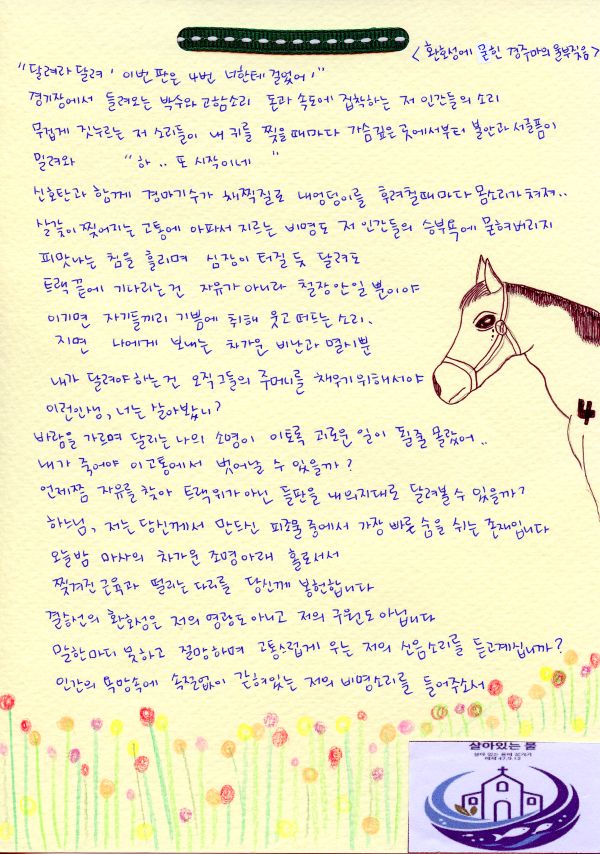 <환호성에 묻힌 경주마의 울부짖음>
"달려라 달려! 이번 판은 4번 너한테 걸었어!"
경기장에서 들려오는 박수와 고함소리 돈과 속도에 집착하는 저 인간들의 소리
무겁게 짓누르는 저 소리들이 내 귀를 찢을때마다 가슴깊은 곳에서부터 불안과 서글픔이
밀려와 "하.. 또 시작이네"
신호탄과 함께 경마기수가 채찍질로 내엉덩이를 후려칠때마다 몸소리가 쳐져..
살갗이 찢어지는 고통에 아파서 지르는 비명도 저 인간들의 승부욕에 묻혀버리지
피맛나는 침을 흘리며 심장이 터질 듯 달려도
트랙 끝에 기다리는건 자유가 아니라 철장안일 뿐이야
이기면 자기들끼리 기쁨에 취해 웃고 떠드는 소리.
지면 나에게 보내는 차가운 비난과 멸시뿐
내가 달려야 하는건 오직 그들의 주머니를 채우기위해서야
이런인생, 너는 살아봤니?
바람을 가르며 달리는 나의 소명이 이토록 괴로운 일이 될줄 몰랐어..
내가 죽어야 이고통에서 벗어날 수 있을까?
언제쯤 자유를 찾아 트랙위가 아닌 들판을 내의지대로 달려볼 수 있을까?
하느님, 저는 당신께서 만드신 피조물 중에서 가장 빠른 숨을 쉬는 존재입니다
오늘밤 마사의 차가운 조명아래 홀로서서
찢겨진 근육과 떨리는 다리를 당신께 봉헌합니다
결승선의 환호성은 저의 영광도 아니고 저의 구원도 아닙니다
말한마디 못하고 절망하며 고통스럽게 우는 저의 신음소리를 듣고계십니까?
인간의 욕망속에 속절없이 갇혀있는 저의 비명소리를 들어주소서
4
살아있는 물
에제 47,9.12